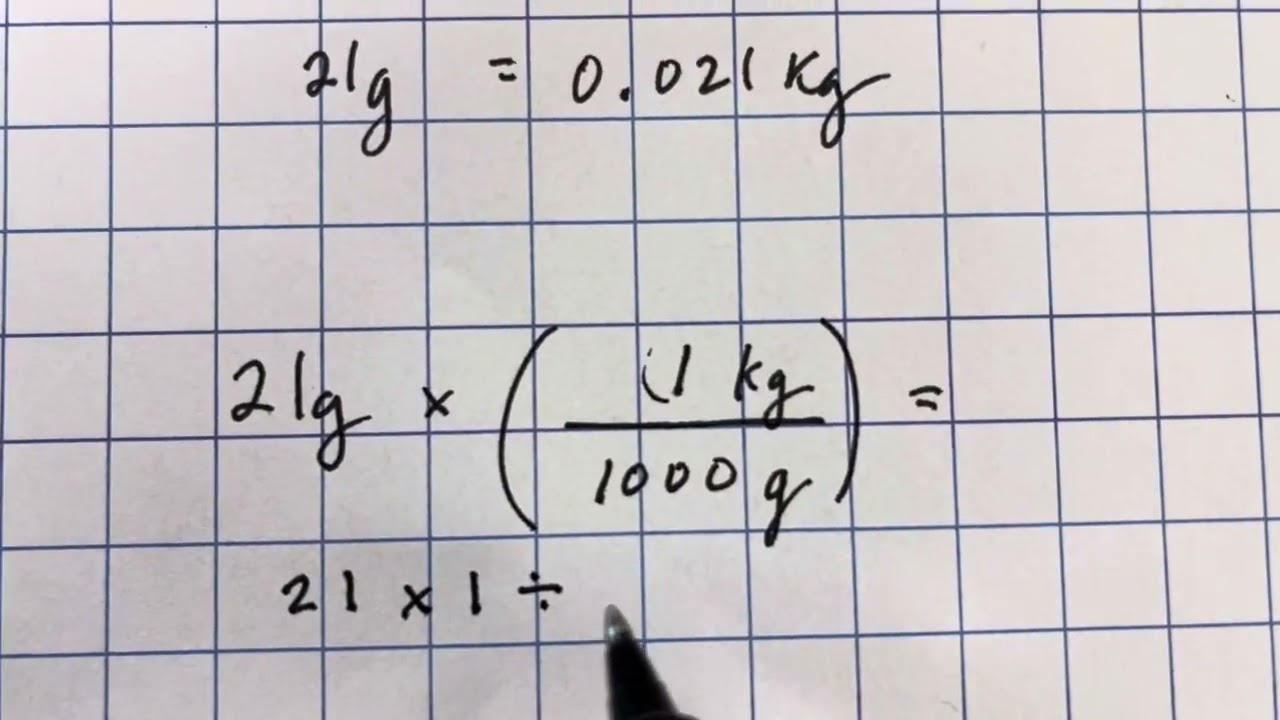 21g = 0.021 Kg
21g × ( 1 kg / 1000 g ) =
21 × 1 ÷